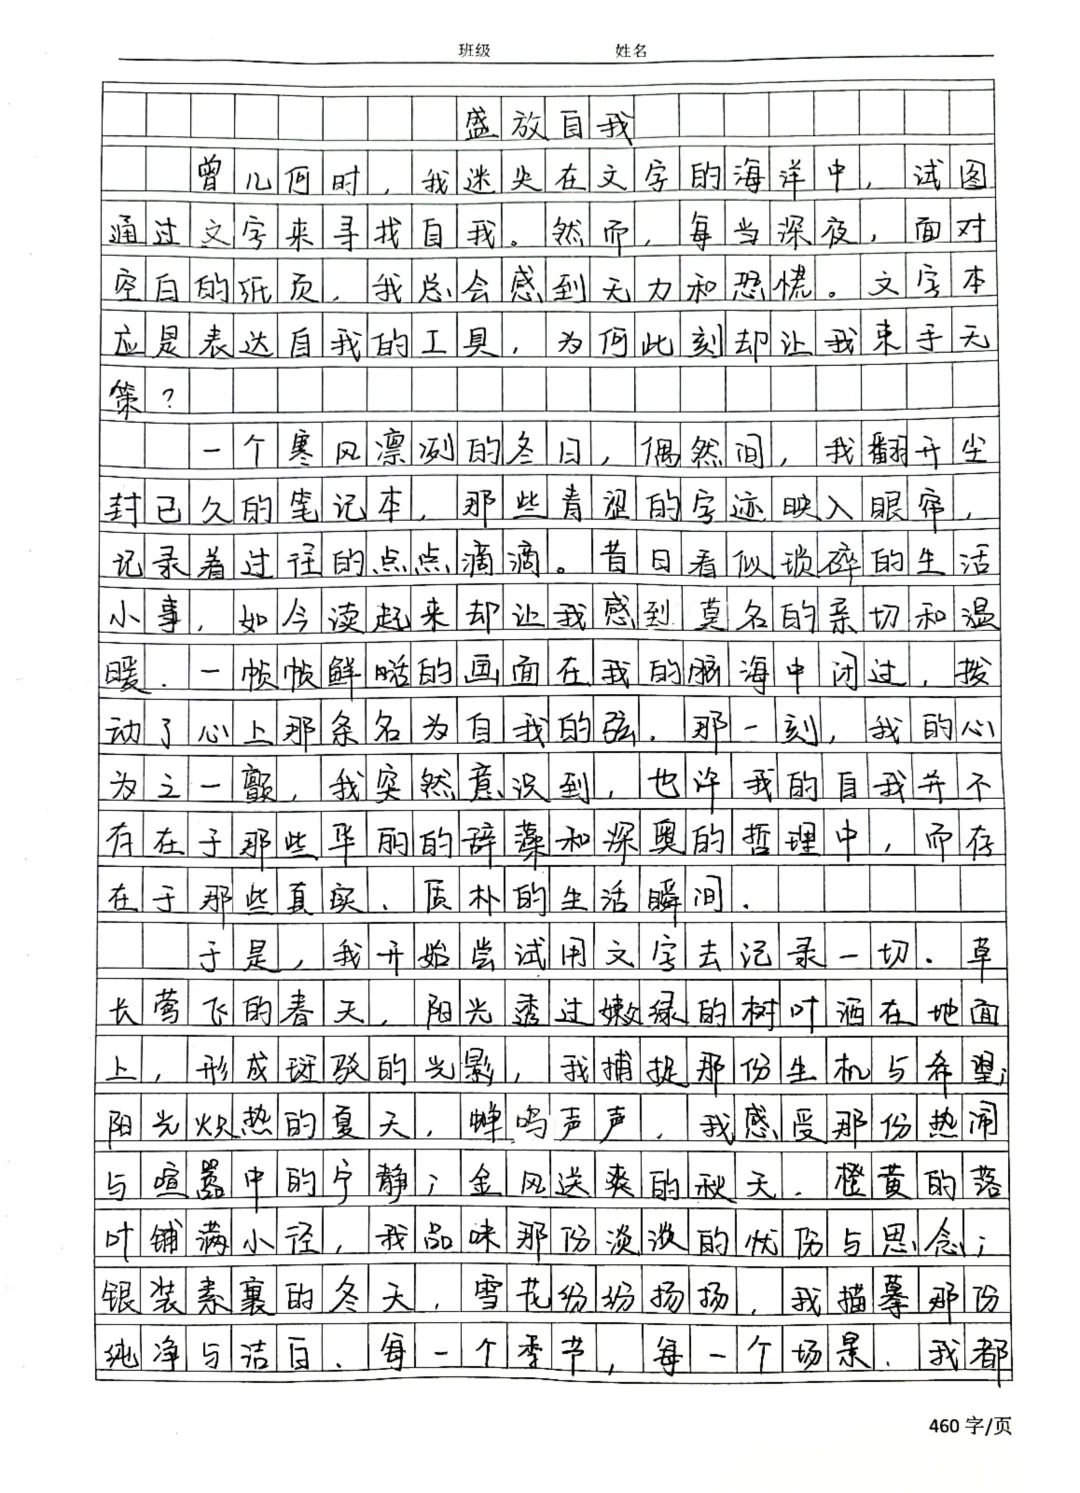 班级 姓名
盛放自我
曾几何时，我迷失在文字的海洋中，试图
通过文字来寻找自我。然而，每当深夜，面对
空白的纸页，我总会感到无力和恐慌。文字本
应是表达自我的工具，为何此刻却让我束手无
策？
一个寒风凛冽的冬日，偶然间，我翻开尘
封已久的笔记本，那些青涩的字迹映入眼帘，
记录着过往的点点滴滴。昔日看似琐碎的生活
小事，如今读起来却让我感到莫名的亲切和温
暖．一帧帧鲜活的画面在我的脑海中闪过，拨
动了心上那条名为自我的弦．那一刻，我的心
为之一颤，我突然意识到，也许我的自我并不
存在于那些华丽的辞藻和深奥的哲理中，而存
在于那些真实、质朴的生活瞬间．
于是，我开始尝试用文字去记录一切．草
长莺飞的春天，阳光透过嫩绿的树叶洒在地面
上，形成斑驳的光影，我捕捉那份生机与希望；
阳光炽热的夏天，蝉鸣声声，我感受那份热闹
与喧嚣中的宁静；金风送爽的秋天，橙黄的落
叶铺满小径，我品味那份淡淡的忧伤与思念；
银装素裹的冬天，雪花纷纷扬扬，我描摹那份
纯净与洁白．每一个季节，每一个场景，我都
460字/页